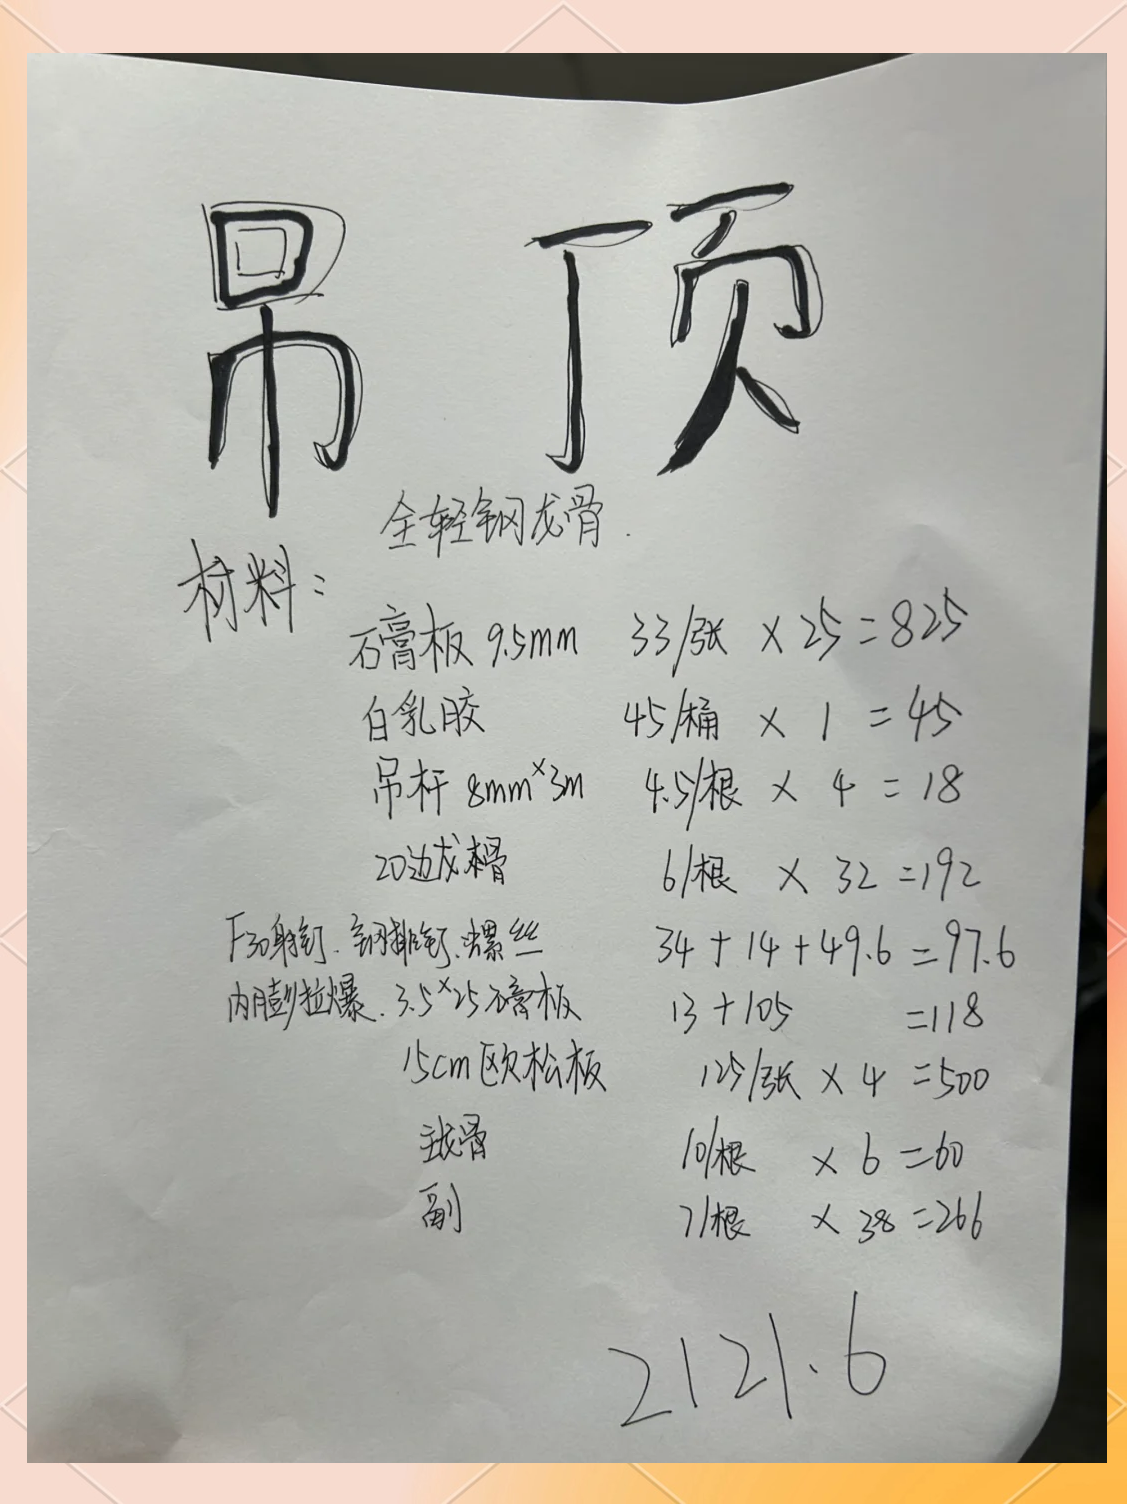 吊顶
全轻钢龙骨.
材料:
石膏板 9.5mm 33/张 × 25 = 825
白乳胶 45/桶 × 1 = 45
吊杆 8mm×3m 4.5/根 × 4 = 18
20边龙骨 6/根 × 32 = 192
F30射钉、钢排钉、螺丝 34 + 14 + 49.6 = 97.6
内膨拉爆、3.5×25石膏板 13 + 105 = 118
15cm 欧松板 125/张 × 4 = 500
主龙骨 10/根 × 6 = 60
副 7/根 × 38 = 266
2121.6